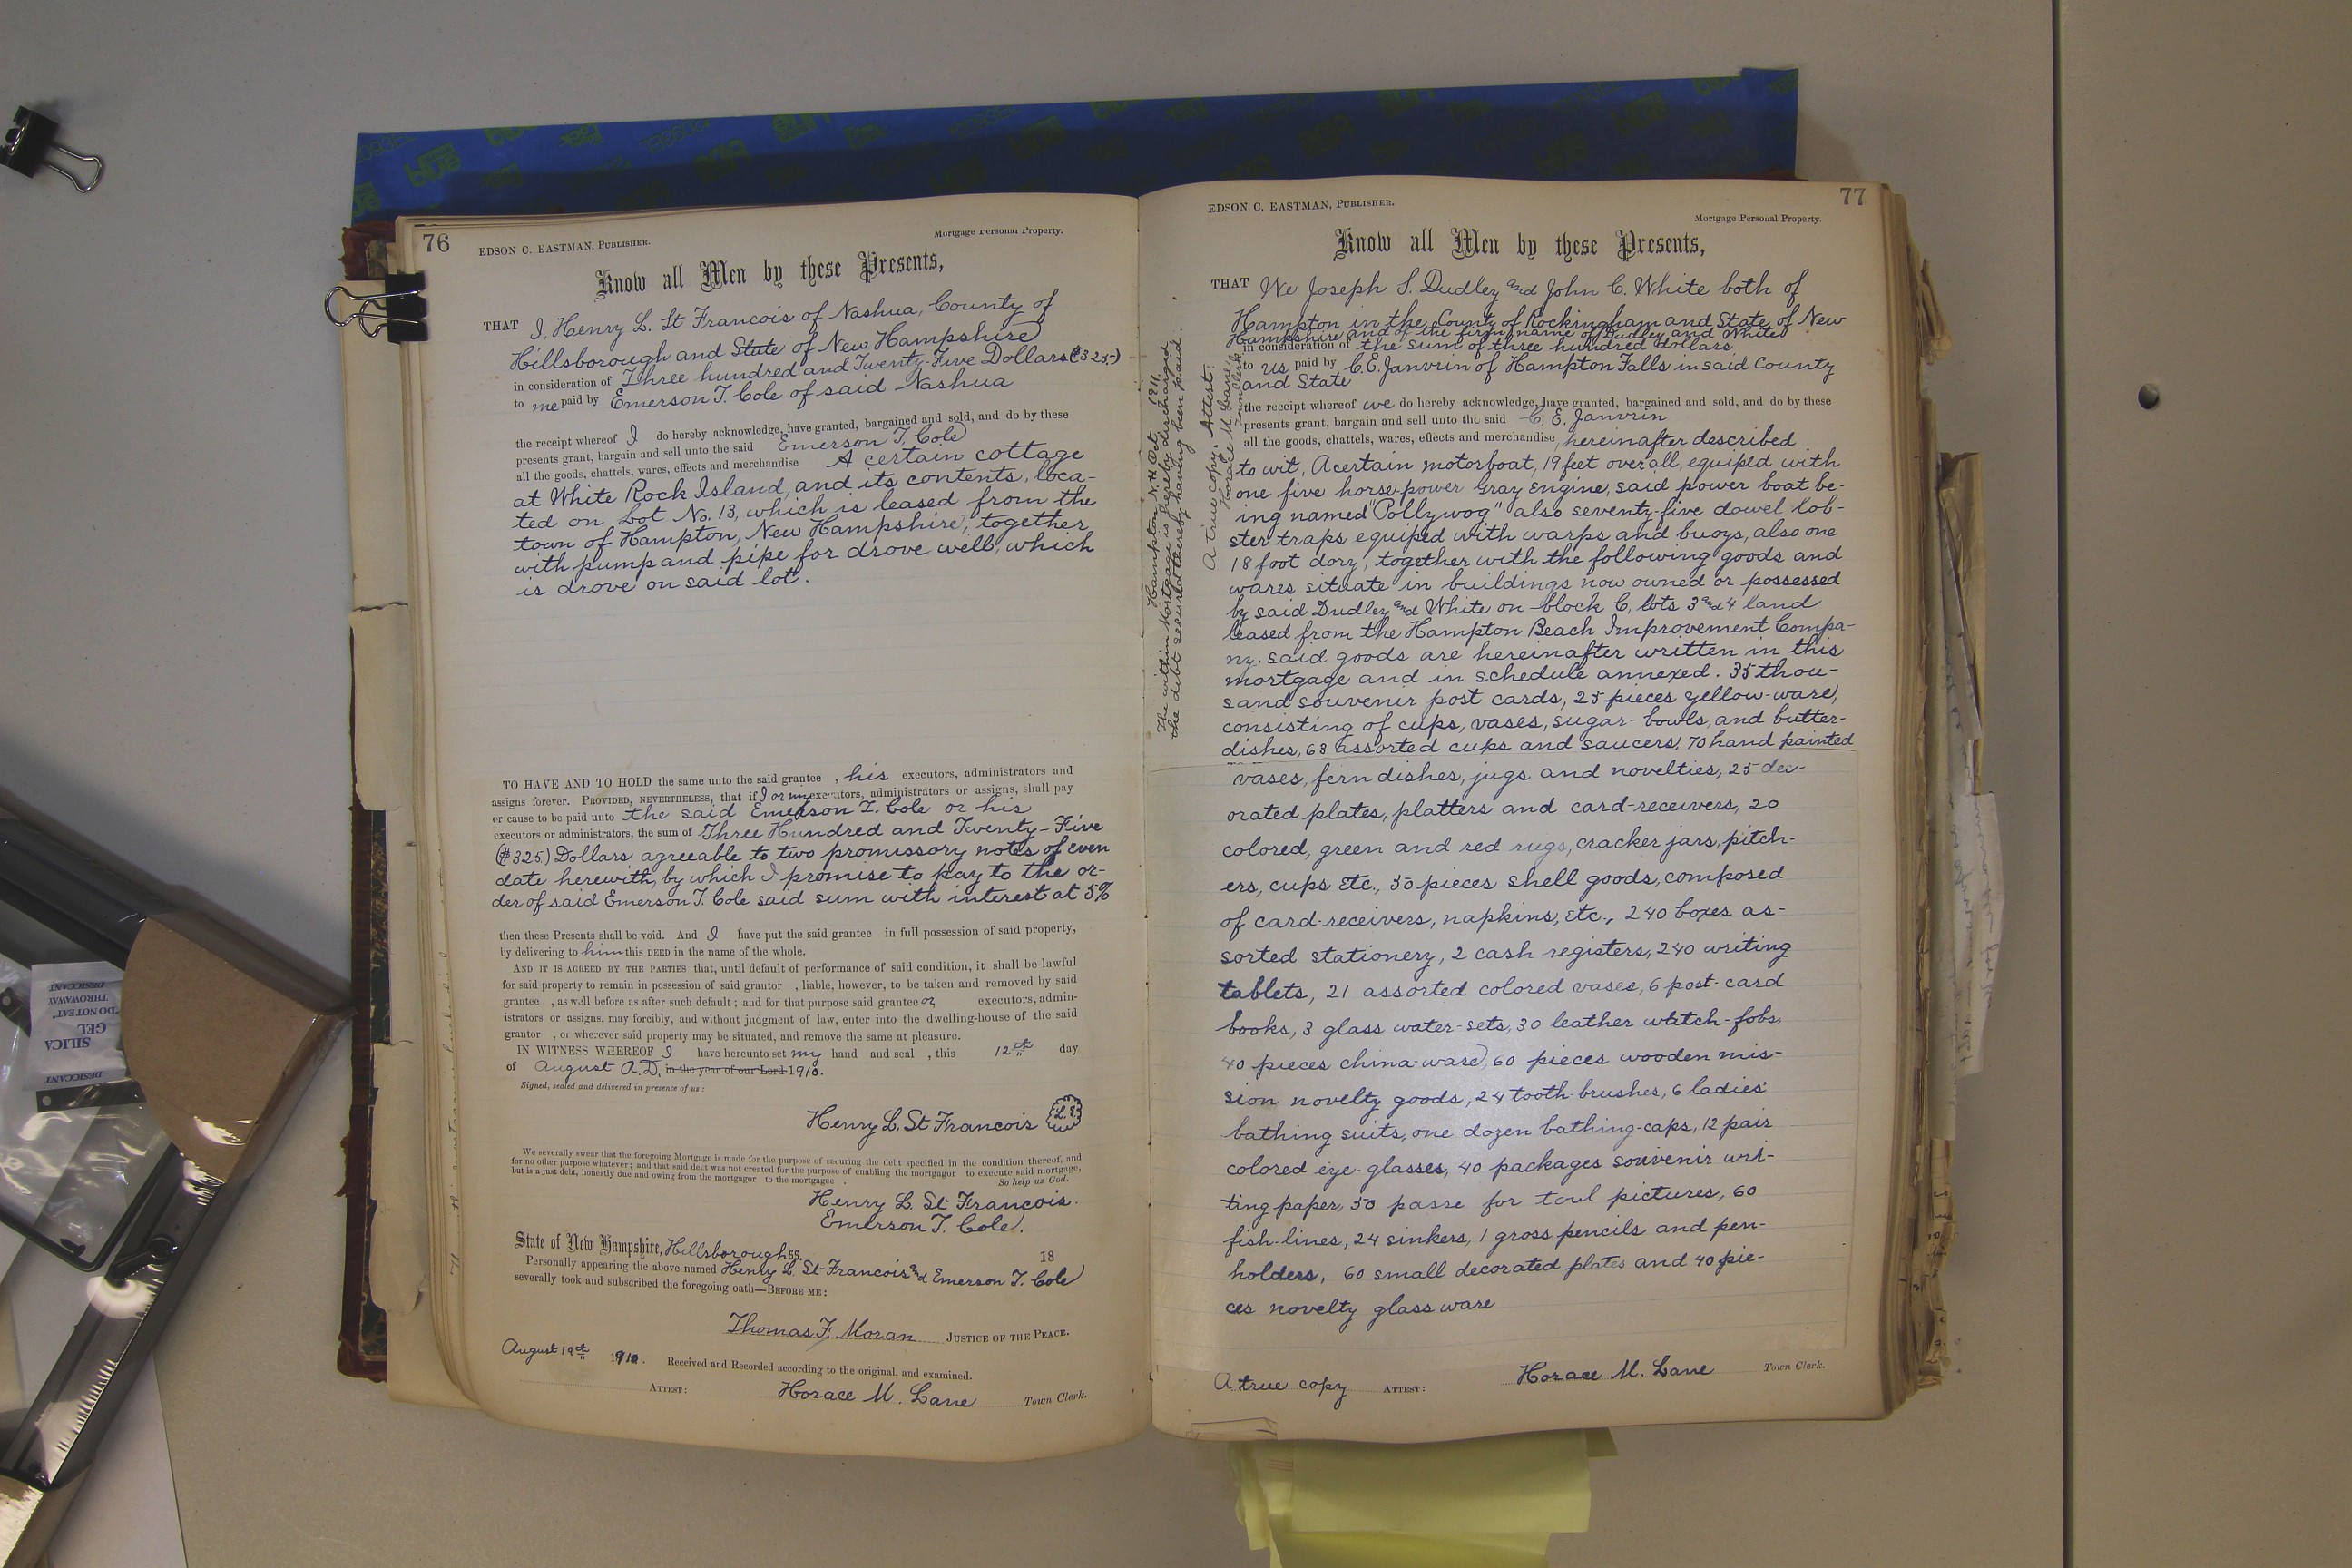 76
EDSON C. EASTMAN, PUBLISHER.
Mortgage Personal Property.
Know all Men by these Presents,
THAT I, Henry L. St Francois of Nashua, County of
Hillsborough and State of New Hampshire
in consideration of Three hundred and Twenty-Five Dollars ($325-)
to me paid by Emerson T. Cole of said Nashua
the receipt whereof I do hereby acknowledge, have granted, bargained and sold, and do by these
presents grant, bargain and sell unto the said Emerson T. Cole
all the goods, chattels, wares, effects and merchandise A certain cottage
at White Rock Island, and its contents, loca-
ted on Lot No. 13, which is leased from the
town of Hampton, New Hampshire, together
with pump and pipe for drove well, which
is drove on said lot.
TO HAVE AND TO HOLD the same unto the said grantee , his executors, administrators and
assigns forever. PROVIDED, NEVERTHELESS, that if I or my executors, administrators or assigns, shall pay
or cause to be paid unto the said Emerson T. Cole or his
executors or administrators, the sum of Three Hundred and Twenty-Five
($325) Dollars agreeable to two promissory notes of even
date herewith, by which I promise to pay to the or-
der of said Emerson T. Cole said sum with interest at 5%
then these Presents shall be void. And I have put the said grantee in full possession of said property,
by delivering to him this DEED in the name of the whole.
AND IT IS AGREED BY THE PARTIES that, until default of performance of said condition, it shall be lawful
for said property to remain in possession of said grantor , liable, however, to be taken and removed by said
grantee , as well before as after such default; and for that purpose said grantee or executors, admin-
istrators or assigns, may forcibly, and without judgment of law, enter into the dwelling-house of the said
grantor , or wherever said property may be situated, and remove the same at pleasure.
IN WITNESS WHEREOF I have hereunto set my hand and seal , this 12th day
of August A.D. in the year of our Lord 1910.
Signed, sealed and delivered in presence of us:
Henry L. St Francois L.S.
We severally swear that the foregoing Mortgage is made for the purpose of securing the debt specified in the condition thereof, and
for no other purpose whatever; and that said debt was not created for the purpose of enabling the mortgagor to execute said mortgage,
but is a just debt, honestly due and owing from the mortgagor to the mortgagee . So help us God.
Henry L. St Francois.
Emerson T. Cole.
State of New Hampshire, Hillsborough ss. 18
Personally appearing the above named Henry L. St Francois and Emerson T. Cole
severally took and subscribed the foregoing oath—BEFORE ME:
Thomas F. Moran JUSTICE OF THE PEACE.
August 19th 1910. Received and Recorded according to the original, and examined.
ATTEST: Horace M. Lane Town Clerk.
77
EDSON C. EASTMAN, PUBLISHER.
Mortgage Personal Property.
Know all Men by these Presents,
THAT We Joseph S. Dudley and John C. White both of
Hampton in the County of Rockingham and State of New
Hampshire and of the firm name of Dudley and White
in consideration of the sum of three hundred dollars
to us paid by C.E. Janvrin of Hampton Falls in said County
and State
the receipt whereof we do hereby acknowledge, have granted, bargained and sold, and do by these
presents grant, bargain and sell unto the said C. E. Janvrin
all the goods, chattels, wares, effects and merchandise, hereinafter described
to wit, A certain motorboat, 19 feet over all, equiped with
one five horse-power Gray Engine, said power boat be-
ing named "Pollywog" also seventy-five dowel lob-
ster traps equiped with warps and buoys, also one
18 foot dory, together with the following goods and
wares situate in buildings now owned or possessed
by said Dudley and White on block C, lots 3 and 4 land
leased from the Hampton Beach Improvement Compa-
ny. said goods are hereinafter written in this
mortgage and in schedule annexed. 35 thou-
sand souvenir post cards, 25 pieces yellow-ware,
consisting of cups, vases, sugar-bowls, and butter-
dishes, 63 assorted cups and saucers, 70 hand painted
vases, fern dishes, jugs and novelties, 25 dec-
orated plates, platters and card-receivers, 20
colored, green and red rugs, cracker jars, pitch-
ers, cups Etc., 30 pieces shell goods, composed
of card-receivers, napkins, Etc., 240 boxes as-
sorted stationery, 2 cash registers, 240 writing
tablets, 21 assorted colored vases, 6 post-card
books, 3 glass water-sets, 30 leather watch-fobs,
40 pieces china-ware, 60 pieces wooden mis-
sion novelty goods, 24 tooth brushes, 6 ladies'
bathing suits, one dozen bathing-caps, 12 pair
colored eye-glasses, 40 packages souvenir wri-
ting paper, 50 passe for toul pictures, 60
fish-lines, 24 sinkers, 1 gross pencils and pen-
holders, 60 small decorated plates and 40 pie-
ces novelty glass ware
A true copy ATTEST: Horace M. Lane Town Clerk.
Hampton N.H. Oct. 1911.
The within Mortgage is hereby discharged
the debt secured thereby having been paid.
A true copy, Attest:
Horace M. Lane
Town Clerk
DESICCANT
SILICA
GEL
"DO NOT EAT"
THROWAWAY
DESICCANT